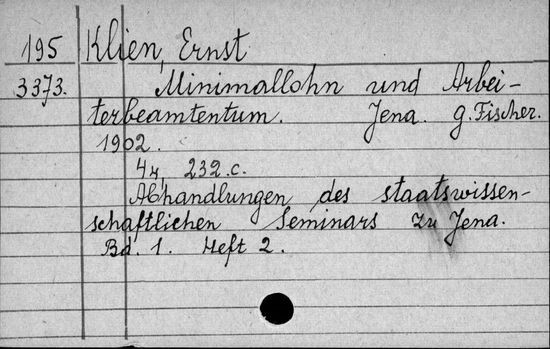 195 Klien, Ernst
3373. Minimallohn und Arbei-
terbeamtentum. Jena. G. Fischer.
1902.
4н, 232.c.
Abhandlungen des staatswissen-
schaftlichen Seminars zu Jena.
Bd. 1. Heft 2.